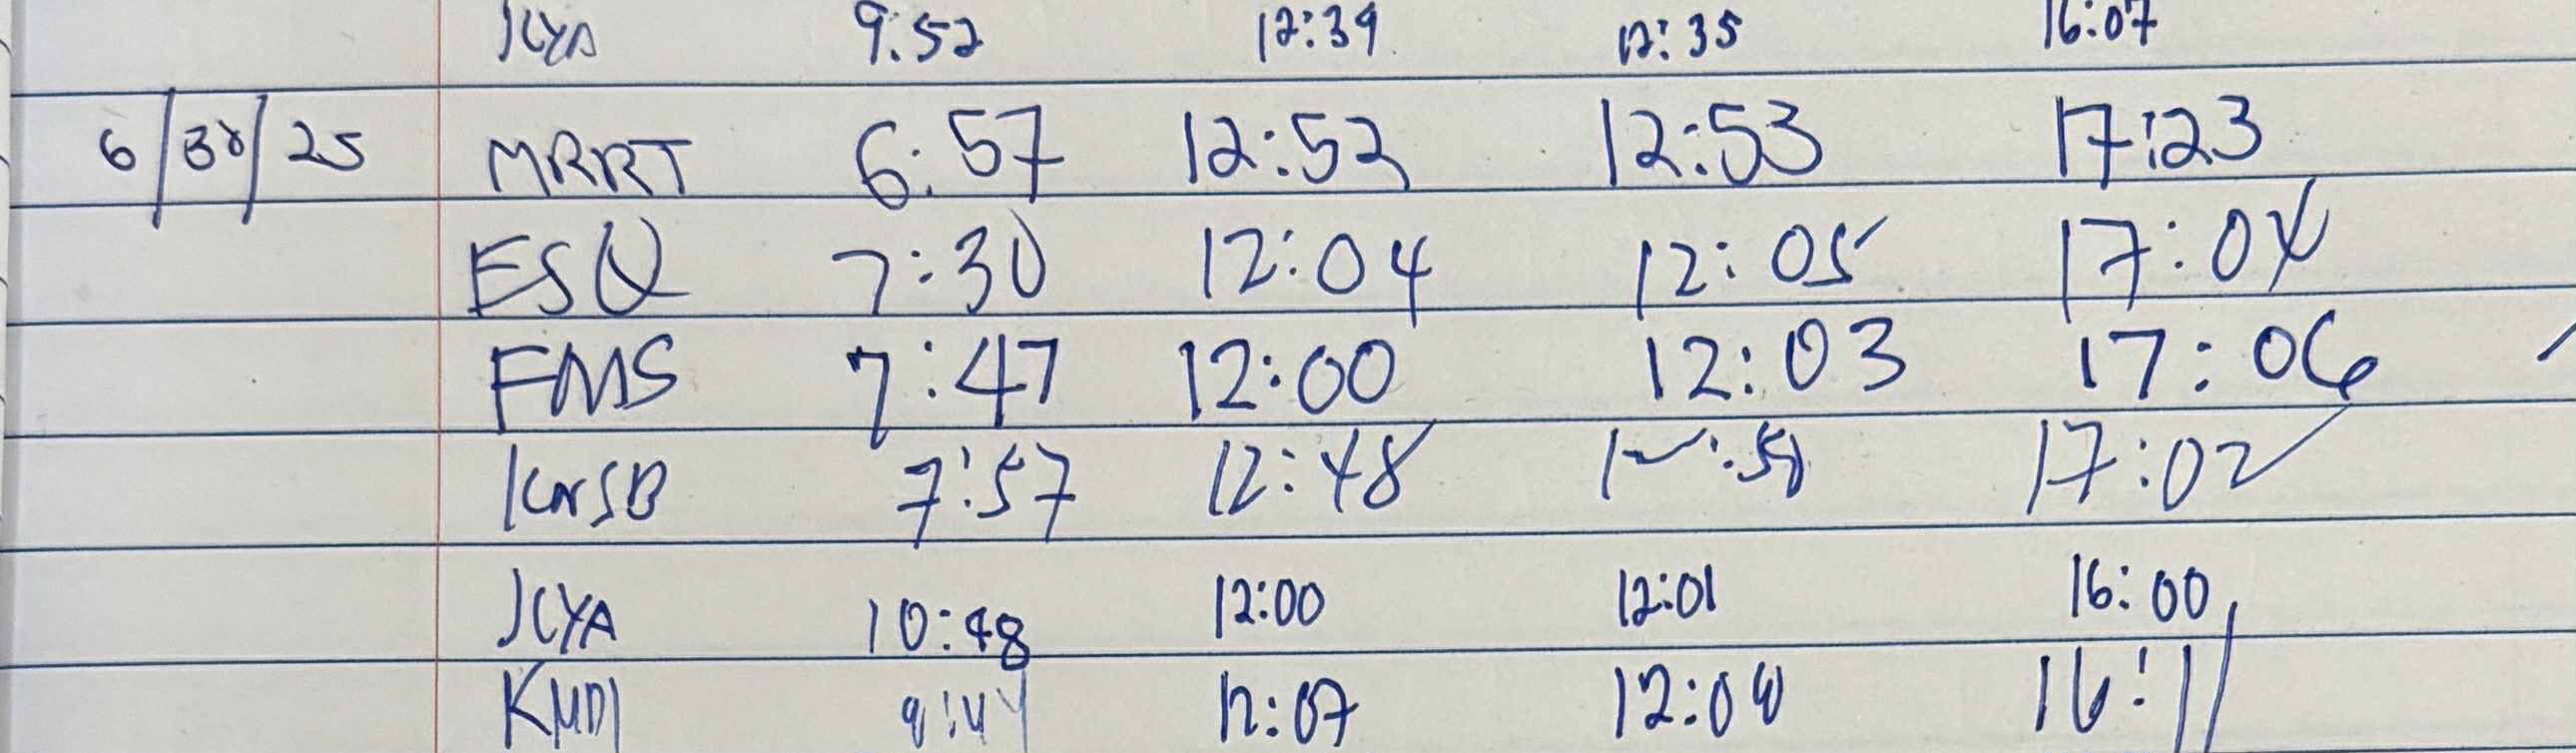 JCYA 9:52 12:34 12:35 16:07
6/30/25 MRRT 6:57 12:52 12:53 17:23
ESQ 7:30 12:04 12:05 17:04
FMS 7:47 12:00 12:03 17:06
7:57 12:48 17:02
JCYA 10:48 12:00 12:01 16:00
12:07 16:11